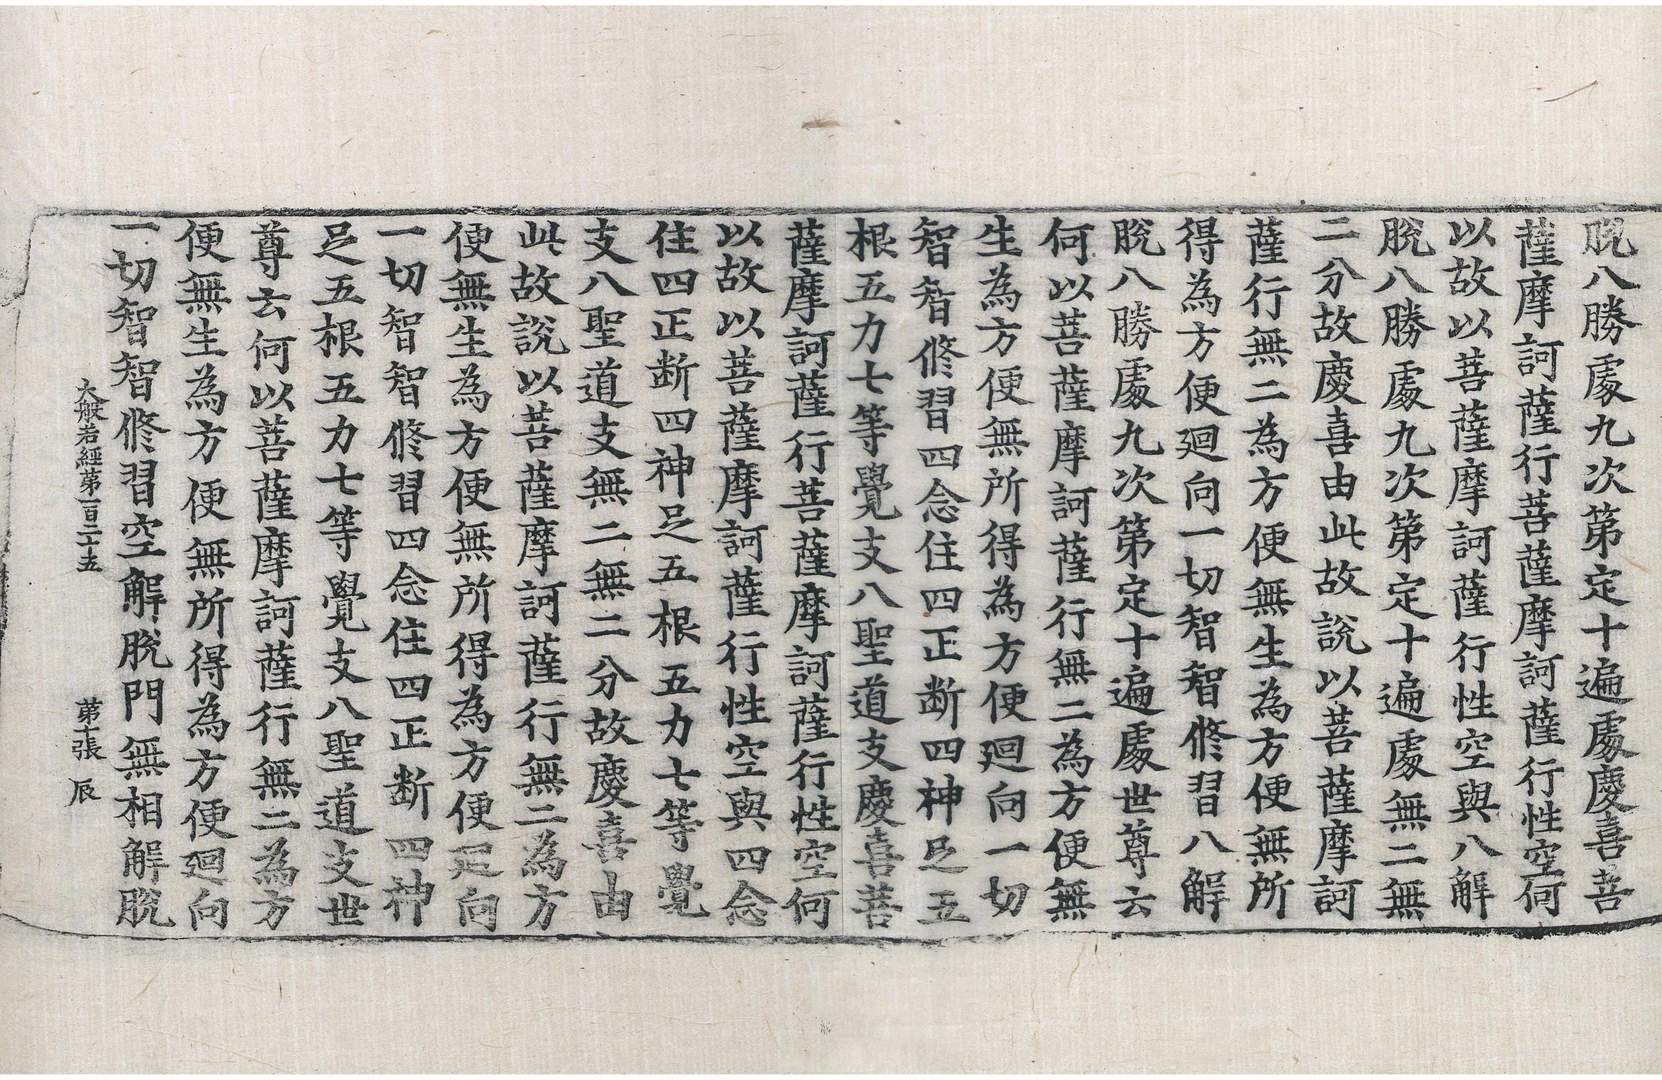 脫八勝處九次第定十遍處慶喜菩
薩摩訶薩行菩薩摩訶薩行性空何
以故以菩薩摩訶薩行性空與八解
脫八勝處九次第定十遍處無二無
二分故慶喜由此故說以菩薩摩訶
薩行無二為方便無生為方便無所
得為方便廻向一切智智修習八解
脫八勝處九次第定十遍處世尊云
何以菩薩摩訶薩行無二為方便無
生為方便無所得為方便廻向一切
智智修習四念住四正断四神足五
根五力七等覺支八聖道支慶喜菩
薩摩訶薩行菩薩摩訶薩行性空何
以故以菩薩摩訶薩行性空與四念
住四正断四神足五根五力七等覺
支八聖道支無二無二分故慶喜由
此故說以菩薩摩訶薩行無二為方
便無生為方便無所得為方便廻向
一切智智修習四念住四正断四神
足五根五力七等覺支八聖道支世
尊云何以菩薩摩訶薩行無二為方
便無生為方便無所得為方便廻向
一切智智修習空解脫門無相解脫
大般若經第一百二十五 第十張 辰